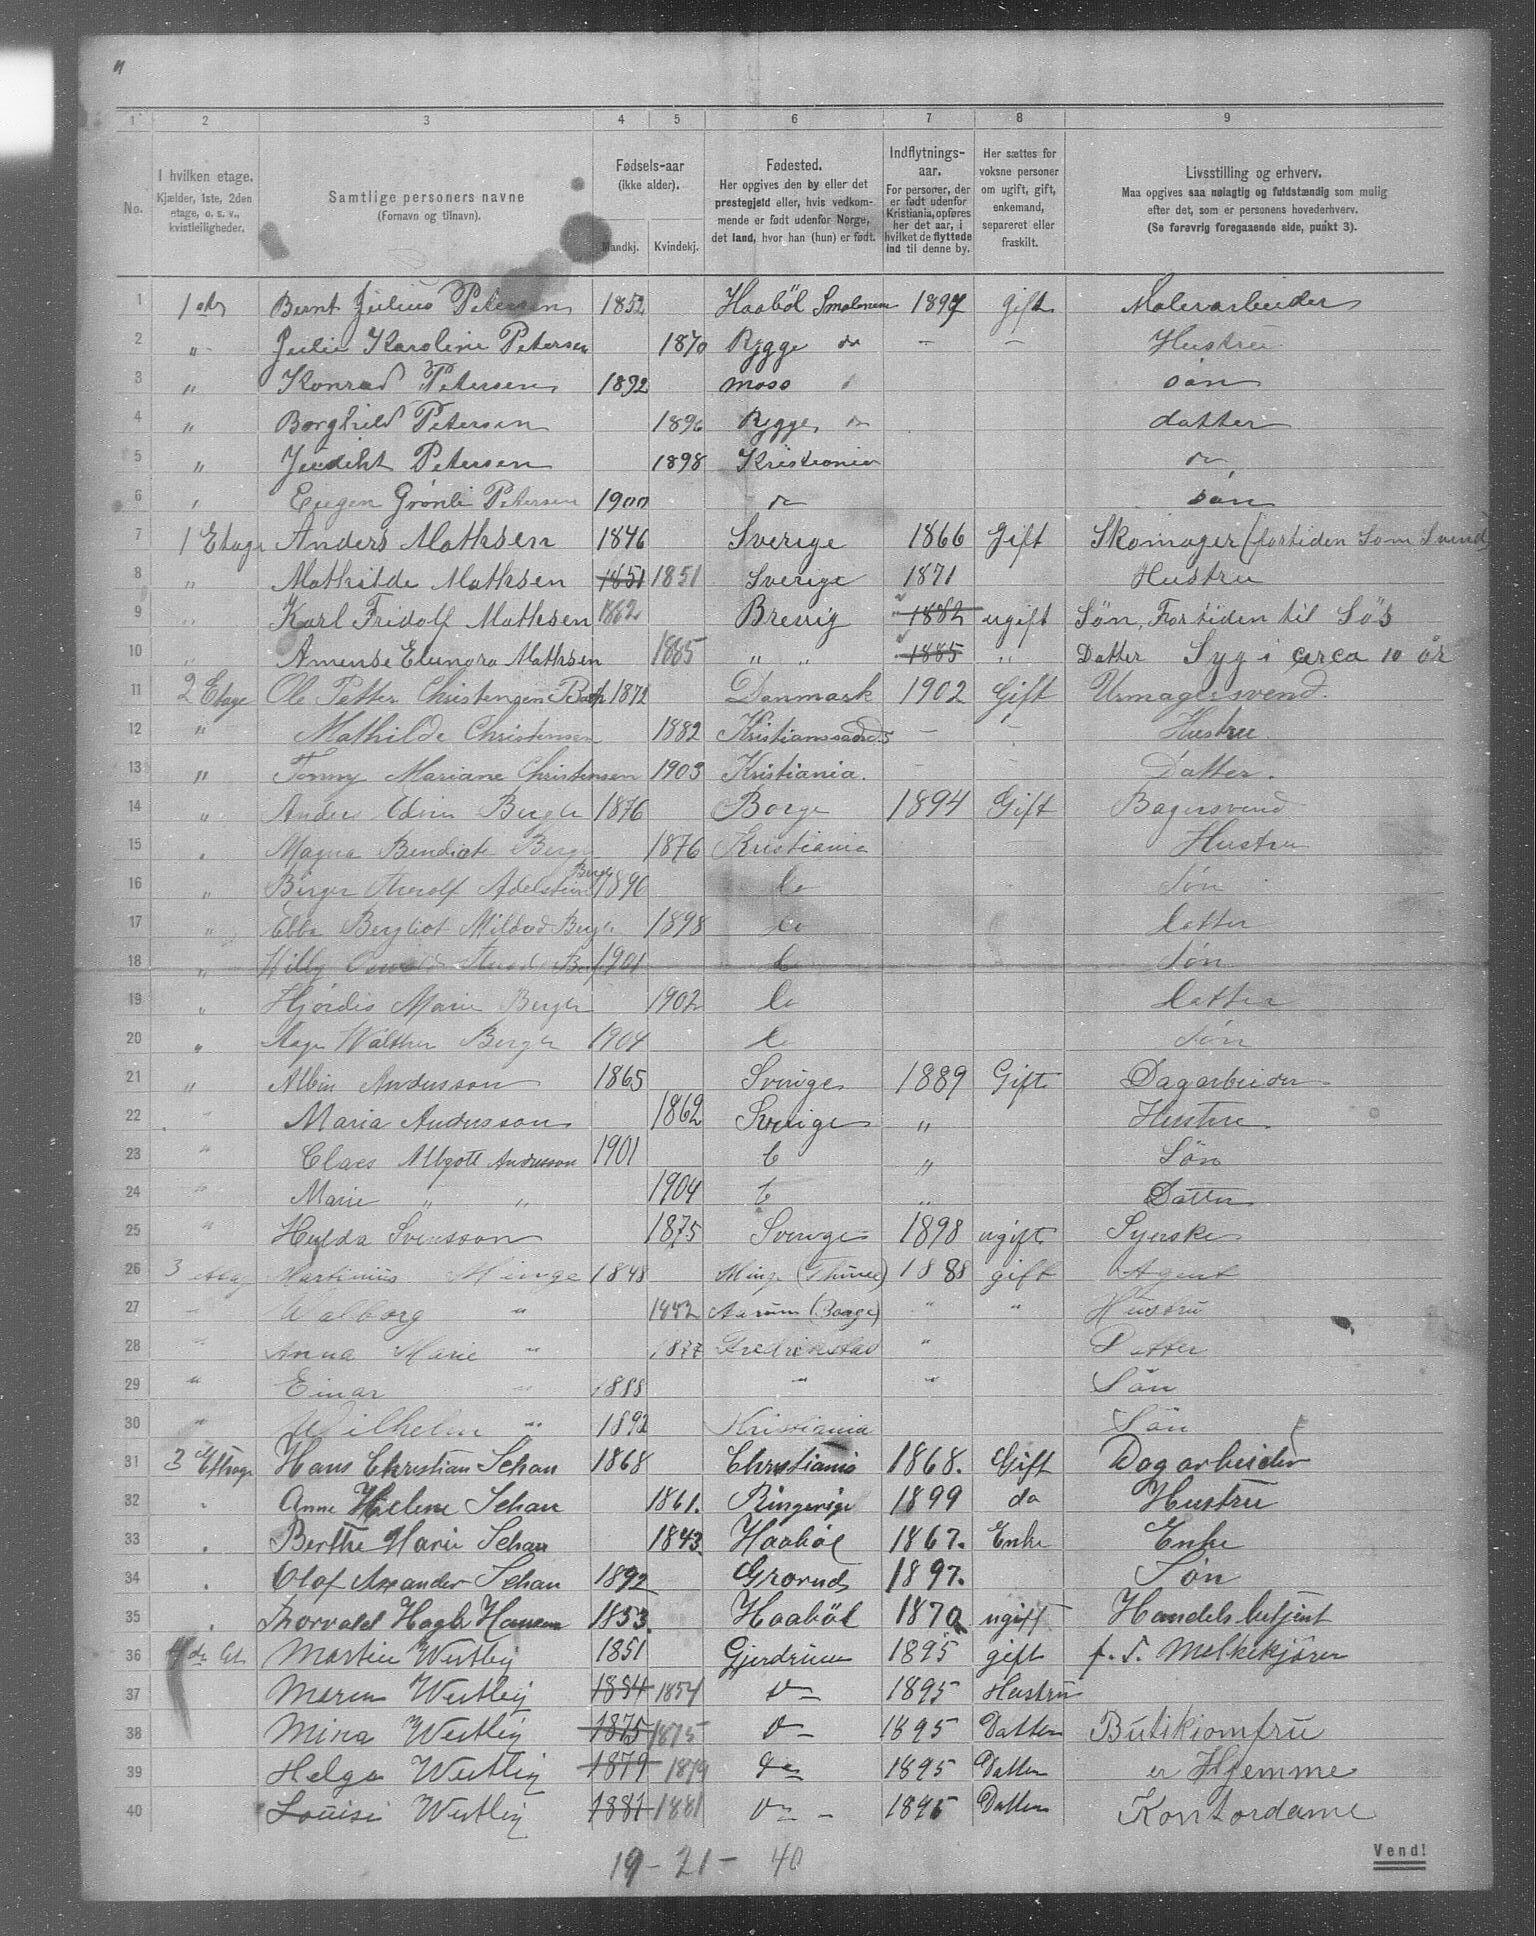 1 2 3 4 5 6 7 8 9
No.
I hvilken etage. Kjælder, 1ste, 2den etage, o. s. v., kvistleiligheder.
Samtlige personers navne (Fornavn og tilnavn).
Fødsels-aar (ikke alder). Mandkj. Kvindekj.
Fødested. Her opgives den by eller det prestegjeld eller, hvis vedkommende er født udenfor Norge, det land, hvor han (hun) er født.
Indflytnings-aar. For personer, der er født udenfor Kristiania, opføres her det aar, i hvilket de flyttede ind til denne by.
Her sættes for voksne personer om ugift, gift, enkemand, separeret eller fraskilt.
Livsstilling og erhverv. Maa opgives saa nøiagtig og fuldstændig som mulig efter det, som er personens hovederhverv. (Se forøvrig foregaaende side, punkt 3).
1 1ste Bernt Julius Petersen 1852 Haabøl Smalenene 1897 Gift Malerarbeider
2 " Julie Karoline Petersen 1870 Rygge do — — Hustru
3 " Konrad Petersen 1892 Moss Søn
4 " Borghild Petersen 1896 Rygge do datter
5 " Judiht Petersen 1898 Kristiania do
6 " Eugen Grønli Petersen 1900 do Søn
7 1 Etage Anders Mathsen 1846 Sverige 1866 Gift Skomager (fortiden Som Svend)
8 " Mathilde Mathsen 1851 1851 Sverige 1871 Hustru
9 " Karl Fridolf Mathsen 1882 Brevig 1882 ugift Søn, Fortiden til Søs
10 " Amense Elenora Mathsen 1885 " " 1885 " Datter Syg i circa 10 år
11 2 Etage Ole Petter Christensen 1872 Danmark 1902 Gift Urmagersvend.
12 " Mathilde Christensen 1882 Kristianssand.S — Hustru
13 " Tommy Mariane Christensen 1903 Kristiania. — — Datter.
14 " Anders Edvin Berger 1876 Borge 1894 Gift Bagersvend
15 " Magna Bendiate Berger 1876 Kristiania Hustru
16 " Birger Adelsten Berger 1896 do Søn
17 " Ebba Bergliot Mildred Berger 1898 do datter
18 " Willy 1901 do Søn
19 " Hjørdis Marie Berger 1902 do datter
20 " Aage Walther Berger 1904 do Søn
21 " Albin Andersson 1865 Sverige 1889 Gift Dagarbeider
22 " Maria Andersson 1862 Sverige " Hustru
23 " Claes Albgott Andersson 1901 " Søn
24 " Marie " " 1904 " Datter
25 " Hulda Svensson 1875 Sverige 1898 ugift Syerske
26 3 etag Martinius Minge 1848 Minge (Thune) 1888 gift Agent
27 " Walborg " 1852 Aarum (Borge) " " Hustru
28 " Anna Marie " 1877 Fredrikstad " Datter
29 " Einar " 1888 " " Søn
30 " Wilhelm " 1892 Kristiania Søn
31 3 Ethage Hans Christian Schau 1868 Christiania 1868. Gift Dagarbeider
32 " Anne Helene Schau 1861. Ringerige 1899 do Hustru
33 " Berthe Marie Schau 1843. Haabøl 1867. Enke Enke
34 " Olaf Schau 1892 Grorud 1897. Søn
35 " Thorvald Hansen 1853. Haabøl 1870 ugift Handelsbetjent
36 4de Et. Martin Westlig 1851 Gjerdrum 1895 gift f. T. Melkekjører
37 Maren Westlig 1854 1854 do 1895 Hustru
38 Mina Westlig 1875 1875 do 1895 Datter Butikjomfru
39 Helga Westlig 1879 1879 do 1895 Datter er Hjemme
40 Louise Westlig 1881 1881 do — 1895 Datter Kontordame
19 - 21 - 40
Vend!